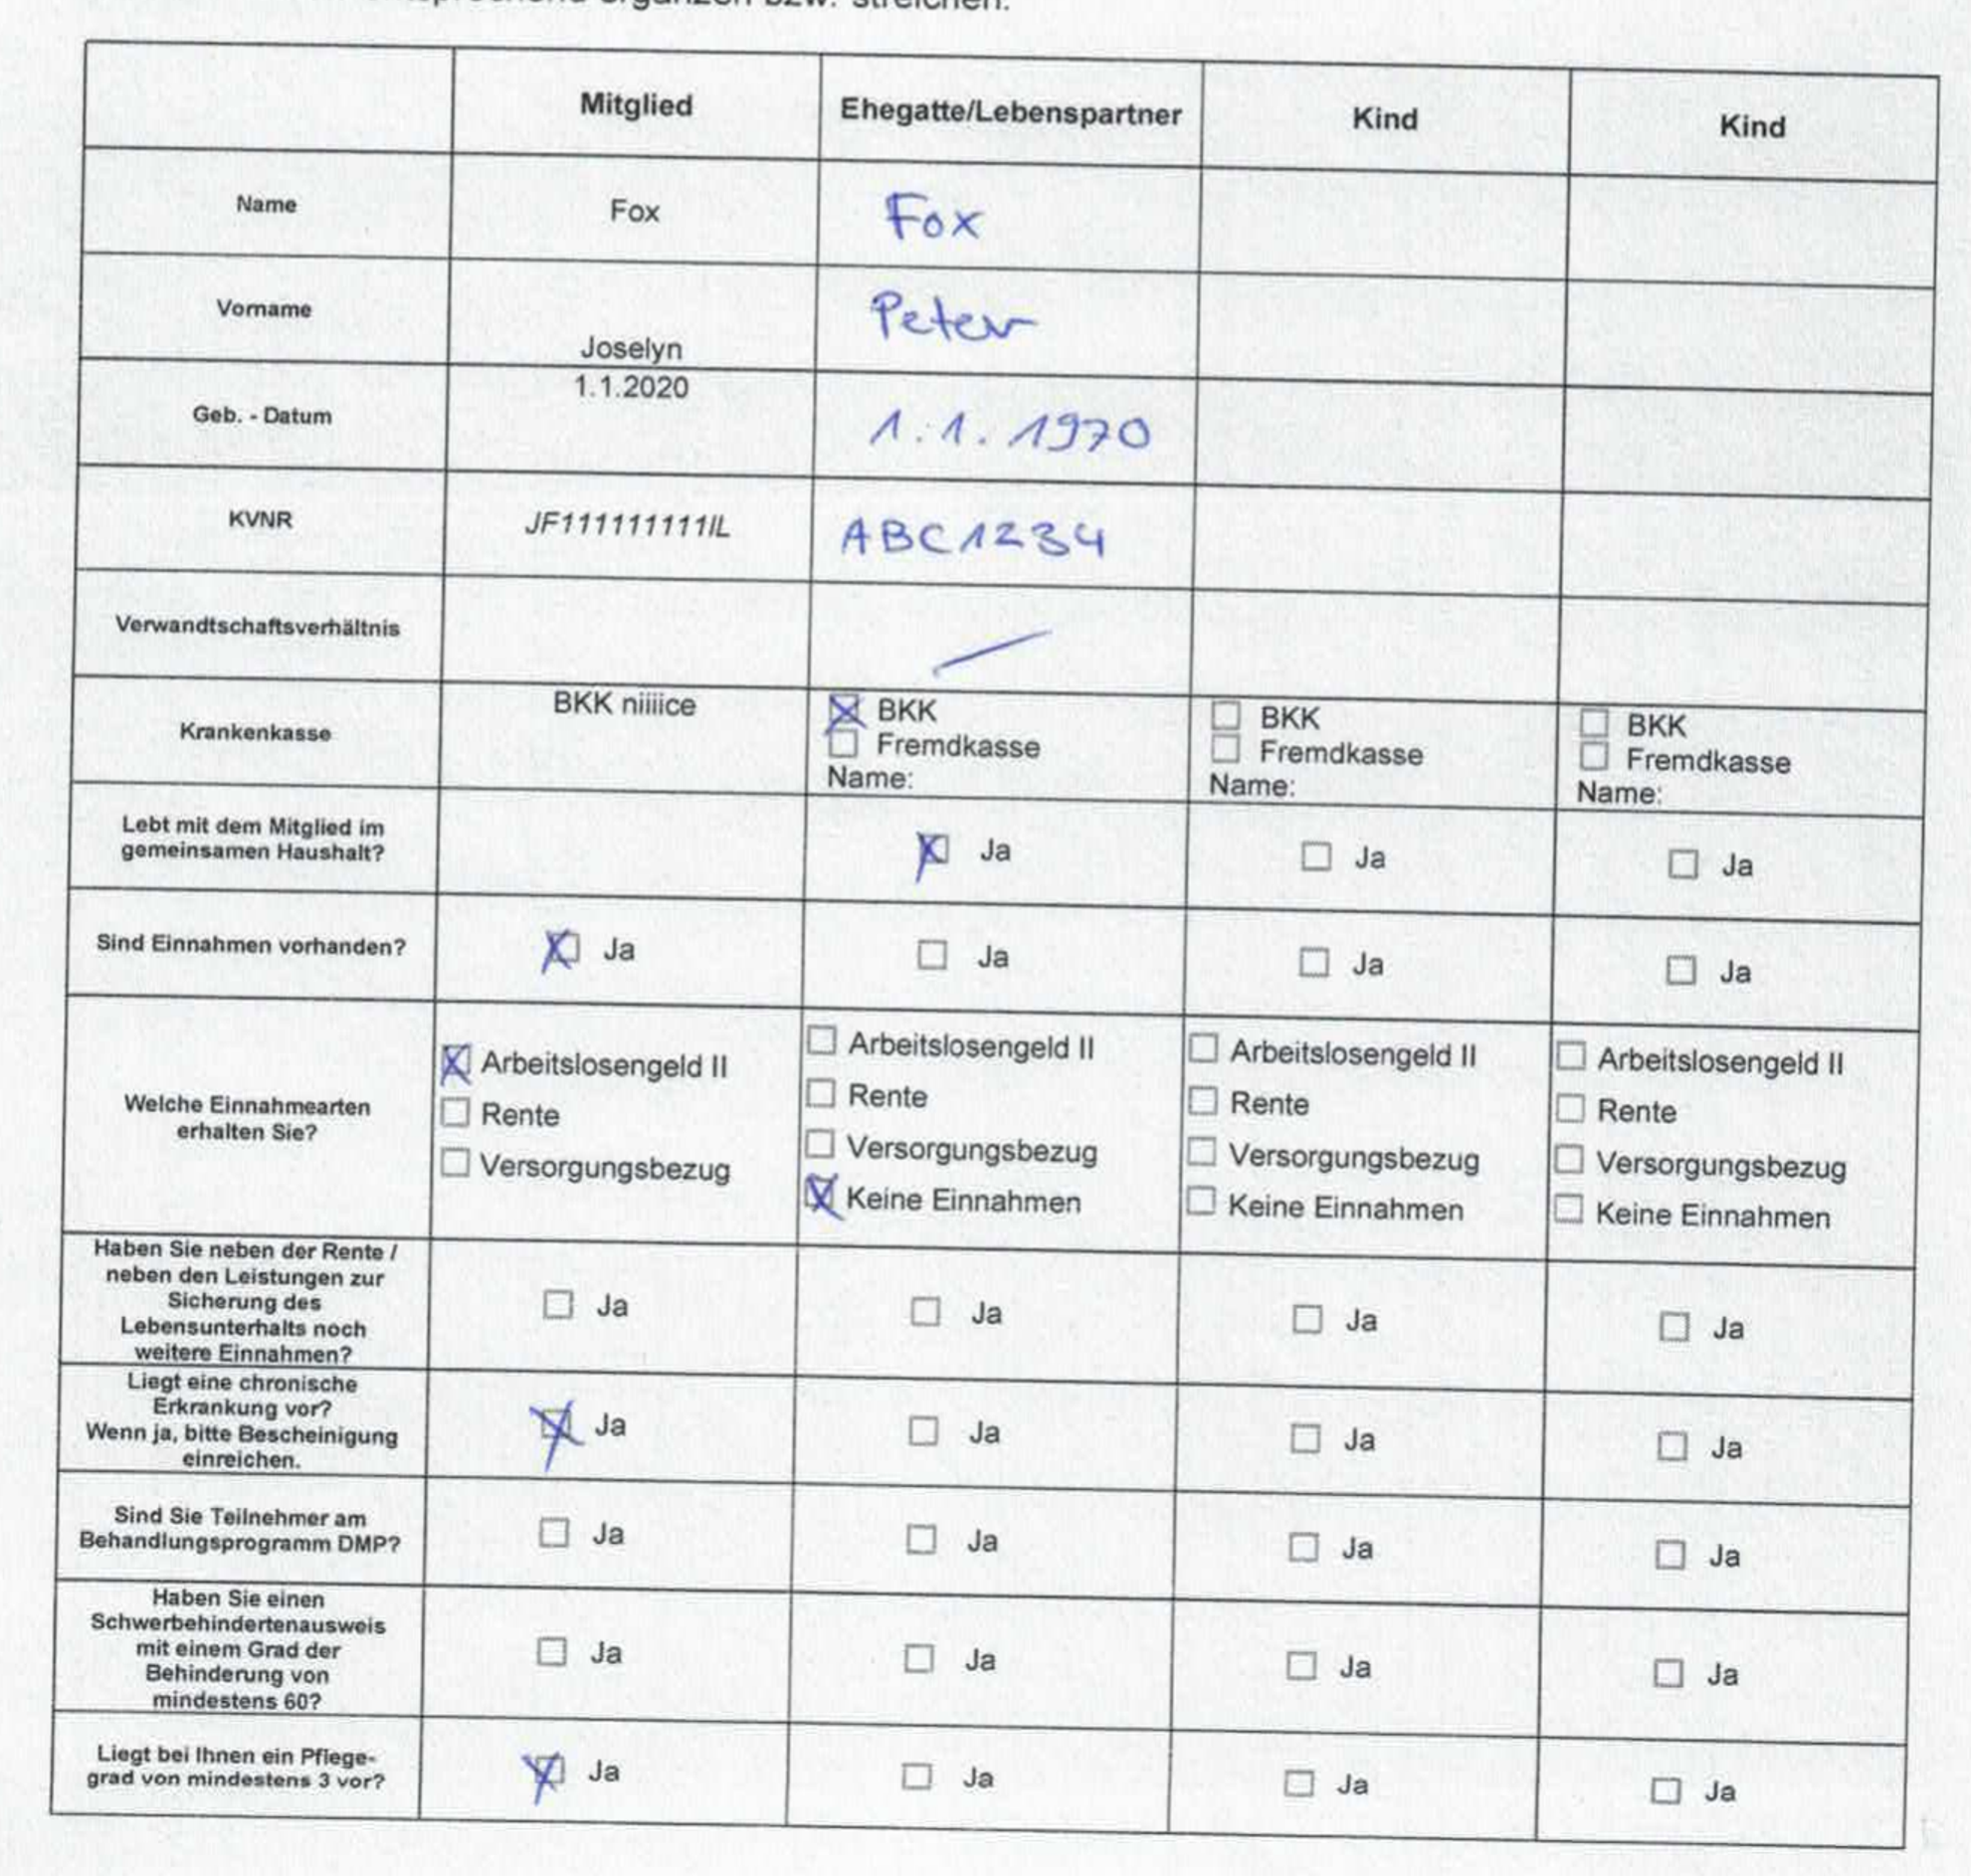 ergänzen bzw. streichen.
Mitglied Ehegatte/Lebenspartner Kind Kind
Name Fox Fox
Vorname Joselyn Peter
Geb. - Datum 1.1.2020 1.1.1970
KVNR JF111111111IL ABC1234
Verwandtschaftsverhältnis
Krankenkasse BKK niiiice
☒ BKK ☐ BKK ☐ BKK
☐ Fremdkasse ☐ Fremdkasse ☐ Fremdkasse
Name: Name: Name:
Lebt mit dem Mitglied im
gemeinsamen Haushalt?
☒ Ja ☐ Ja ☐ Ja
Sind Einnahmen vorhanden? ☒ Ja ☐ Ja ☐ Ja ☐ Ja
Welche Einnahmearten
erhalten Sie?
☒ Arbeitslosengeld II ☐ Arbeitslosengeld II ☐ Arbeitslosengeld II ☐ Arbeitslosengeld II
☐ Rente ☐ Rente ☐ Rente ☐ Rente
☐ Versorgungsbezug ☐ Versorgungsbezug ☐ Versorgungsbezug ☐ Versorgungsbezug
☒ Keine Einnahmen ☐ Keine Einnahmen ☐ Keine Einnahmen
Haben Sie neben der Rente /
neben den Leistungen zur
Sicherung des
Lebensunterhalts noch
weitere Einnahmen?
☐ Ja ☐ Ja ☐ Ja ☐ Ja
Liegt eine chronische
Erkrankung vor?
Wenn ja, bitte Bescheinigung
einreichen.
☒ Ja ☐ Ja ☐ Ja ☐ Ja
Sind Sie Teilnehmer am
Behandlungsprogramm DMP?
☐ Ja ☐ Ja ☐ Ja ☐ Ja
Haben Sie einen
Schwerbehindertenausweis
mit einem Grad der
Behinderung von
mindestens 60?
☐ Ja ☐ Ja ☐ Ja ☐ Ja
Liegt bei Ihnen ein Pflege-
grad von mindestens 3 vor?
☒ Ja ☐ Ja ☐ Ja ☐ Ja